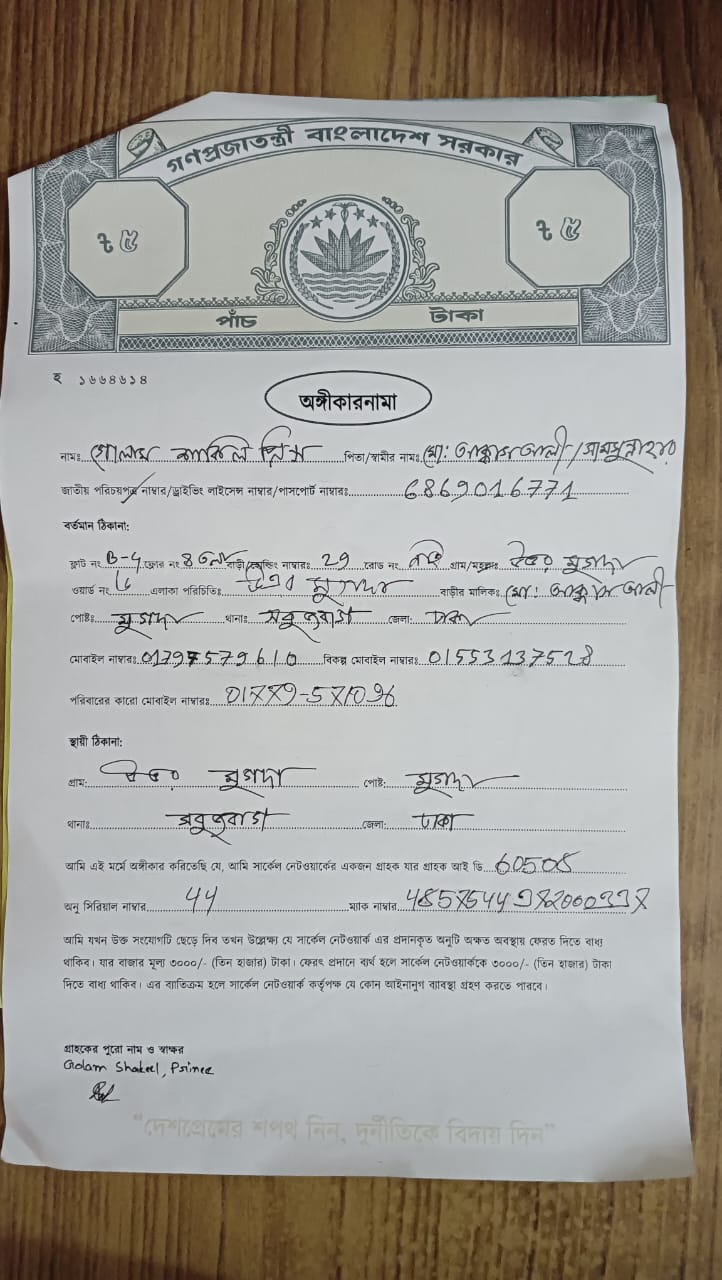 গণপ্রজাতন্ত্রী বাংলাদেশ সরকার
৳ ৫ ৳ ৫
পাঁচ টাকা
হ ১৬৬৪৬১৪
অঙ্গীকারনামা
নামঃ গোলাম শাকিল প্রিন্স পিতা/স্বামীর নামঃ মো: আক্কাস আলী/সামসুন্নাহার
জাতীয় পরিচয়পত্র নাম্বার/ড্রাইভিং লাইসেন্স নাম্বার/পাসপোর্ট নাম্বারঃ 6869016771
বর্তমান ঠিকানা:
ফ্লাট নং B-4 ফ্লোর নং ৪ তলা বাড়ী/হোল্ডিং নাম্বারঃ 29 রোড নং নাই গ্রাম/মহল্লাঃ উত্তর মুগদা
ওয়ার্ড নং এলাকা পরিচিতিঃ উত্তর মুগদা বাড়ীর মালিকঃ মো: আক্কাস আলী
পোষ্টঃ মুগদা থানাঃ সবুজবাগ জেলা: ঢাকা
মোবাইল নাম্বারঃ বিকল্প মোবাইল নাম্বারঃ 01553137528
পরিবারের কারো মোবাইল নাম্বারঃ
স্থায়ী ঠিকানা:
গ্রাম: উত্তর মুগদা পোষ্ট: মুগদা
থানাঃ সবুজবাগ জেলা: ঢাকা
আমি এই মর্মে অঙ্গীকার করিতেছি যে, আমি সার্কেল নেটওয়ার্কের একজন গ্রাহক যার গ্রাহক আই ডি 60508
অনু সিরিয়াল নাম্বার 44 ম্যাক নাম্বার
আমি যখন উক্ত সংযোগটি ছেড়ে দিব তখন উল্লেক্ষ্য যে সার্কেল নেটওয়ার্ক এর প্রদানকৃত অনুটি অক্ষত অবস্থায় ফেরত দিতে বাধ্য
থাকিব। যার বাজার মূল্য ৩০০০/- (তিন হাজার) টাকা। ফেরৎ প্রদানে ব্যর্থ হলে সার্কেল নেটওয়ার্ককে ৩০০০/- (তিন হাজার) টাকা
দিতে বাধ্য থাকিব। এর ব্যতিক্রম হলে সার্কেল নেটওয়ার্ক কর্তৃপক্ষ যে কোন আইনানুগ ব্যবস্থা গ্রহণ করতে পারবে।
গ্রাহকের পুরো নাম ও স্বাক্ষর
Golam Shakeel, Prince
"দেশপ্রেমের শপথ নিন, দুর্নীতিকে বিদায় দিন"